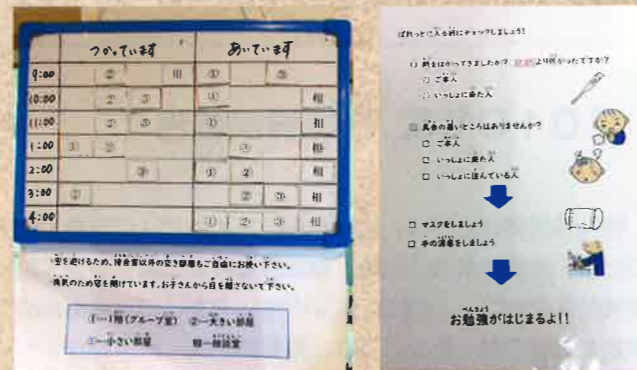 つかっています　あいています
9:00　②　相　①　③
10:00　②　③　①　相
11:00　②　③　①　相
1:00　①　②　③　相
2:00　③　①　②　相
3:00　②　②　③　相
4:00　①　②　③　相
を避けるため、待合室以外の空き部屋もご自由にお使い下さい。
換気のため窓を開けています。お子さんから目を離さないで下さい。
①…1階(グループ室)　②…大きい部屋
③…小さい部屋　相…相談室
ぱれっとに入る前にチェックしましょう!
熱をはかってきましたか? より低かったですか?
□ ご本人
□ いっしょに来た人
□ 具合の悪いところはありませんか?
□ ご本人
□ いっしょに来た人
□ いっしょに住んでいる人
□ マスクをしましょう
□ 手の消毒をしましょう
べんきょう
お勉強がはじまるよ!!